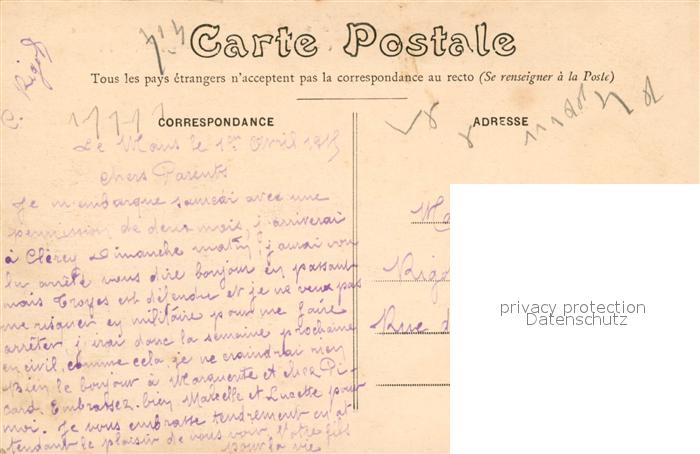 Carte Postale
Tous les pays étrangers n'acceptent pas la correspondance au recto (Se renseigner à la Poste)
CORRESPONDANCE
ADRESSE
C. Rigo
Le Mans le 1er Avril 1915
Chers Parents
Je m'embarque samedi avec une
permission de deux mois, j'arriverai
à Clérey Dimanche matin, j'aurai vou
lu arrêté vous dire bonjour en passant
mais Troyes est défendre et je ne veux pas
me risquer en militaire pour me faire
arrêter j'irai donc la semaine prochaine
en civil comme cela je ne craindrai rien
Bien le bonjour à Marguerite et chez Pi
card. Embrassez bien Marcelle et Lucette pour
moi. Je vous embrasse tendrement en at
tendant le plaisir de vous voir Votre fils
pour la vie
Rigo
Rue d
privacy protection
Datenschutz